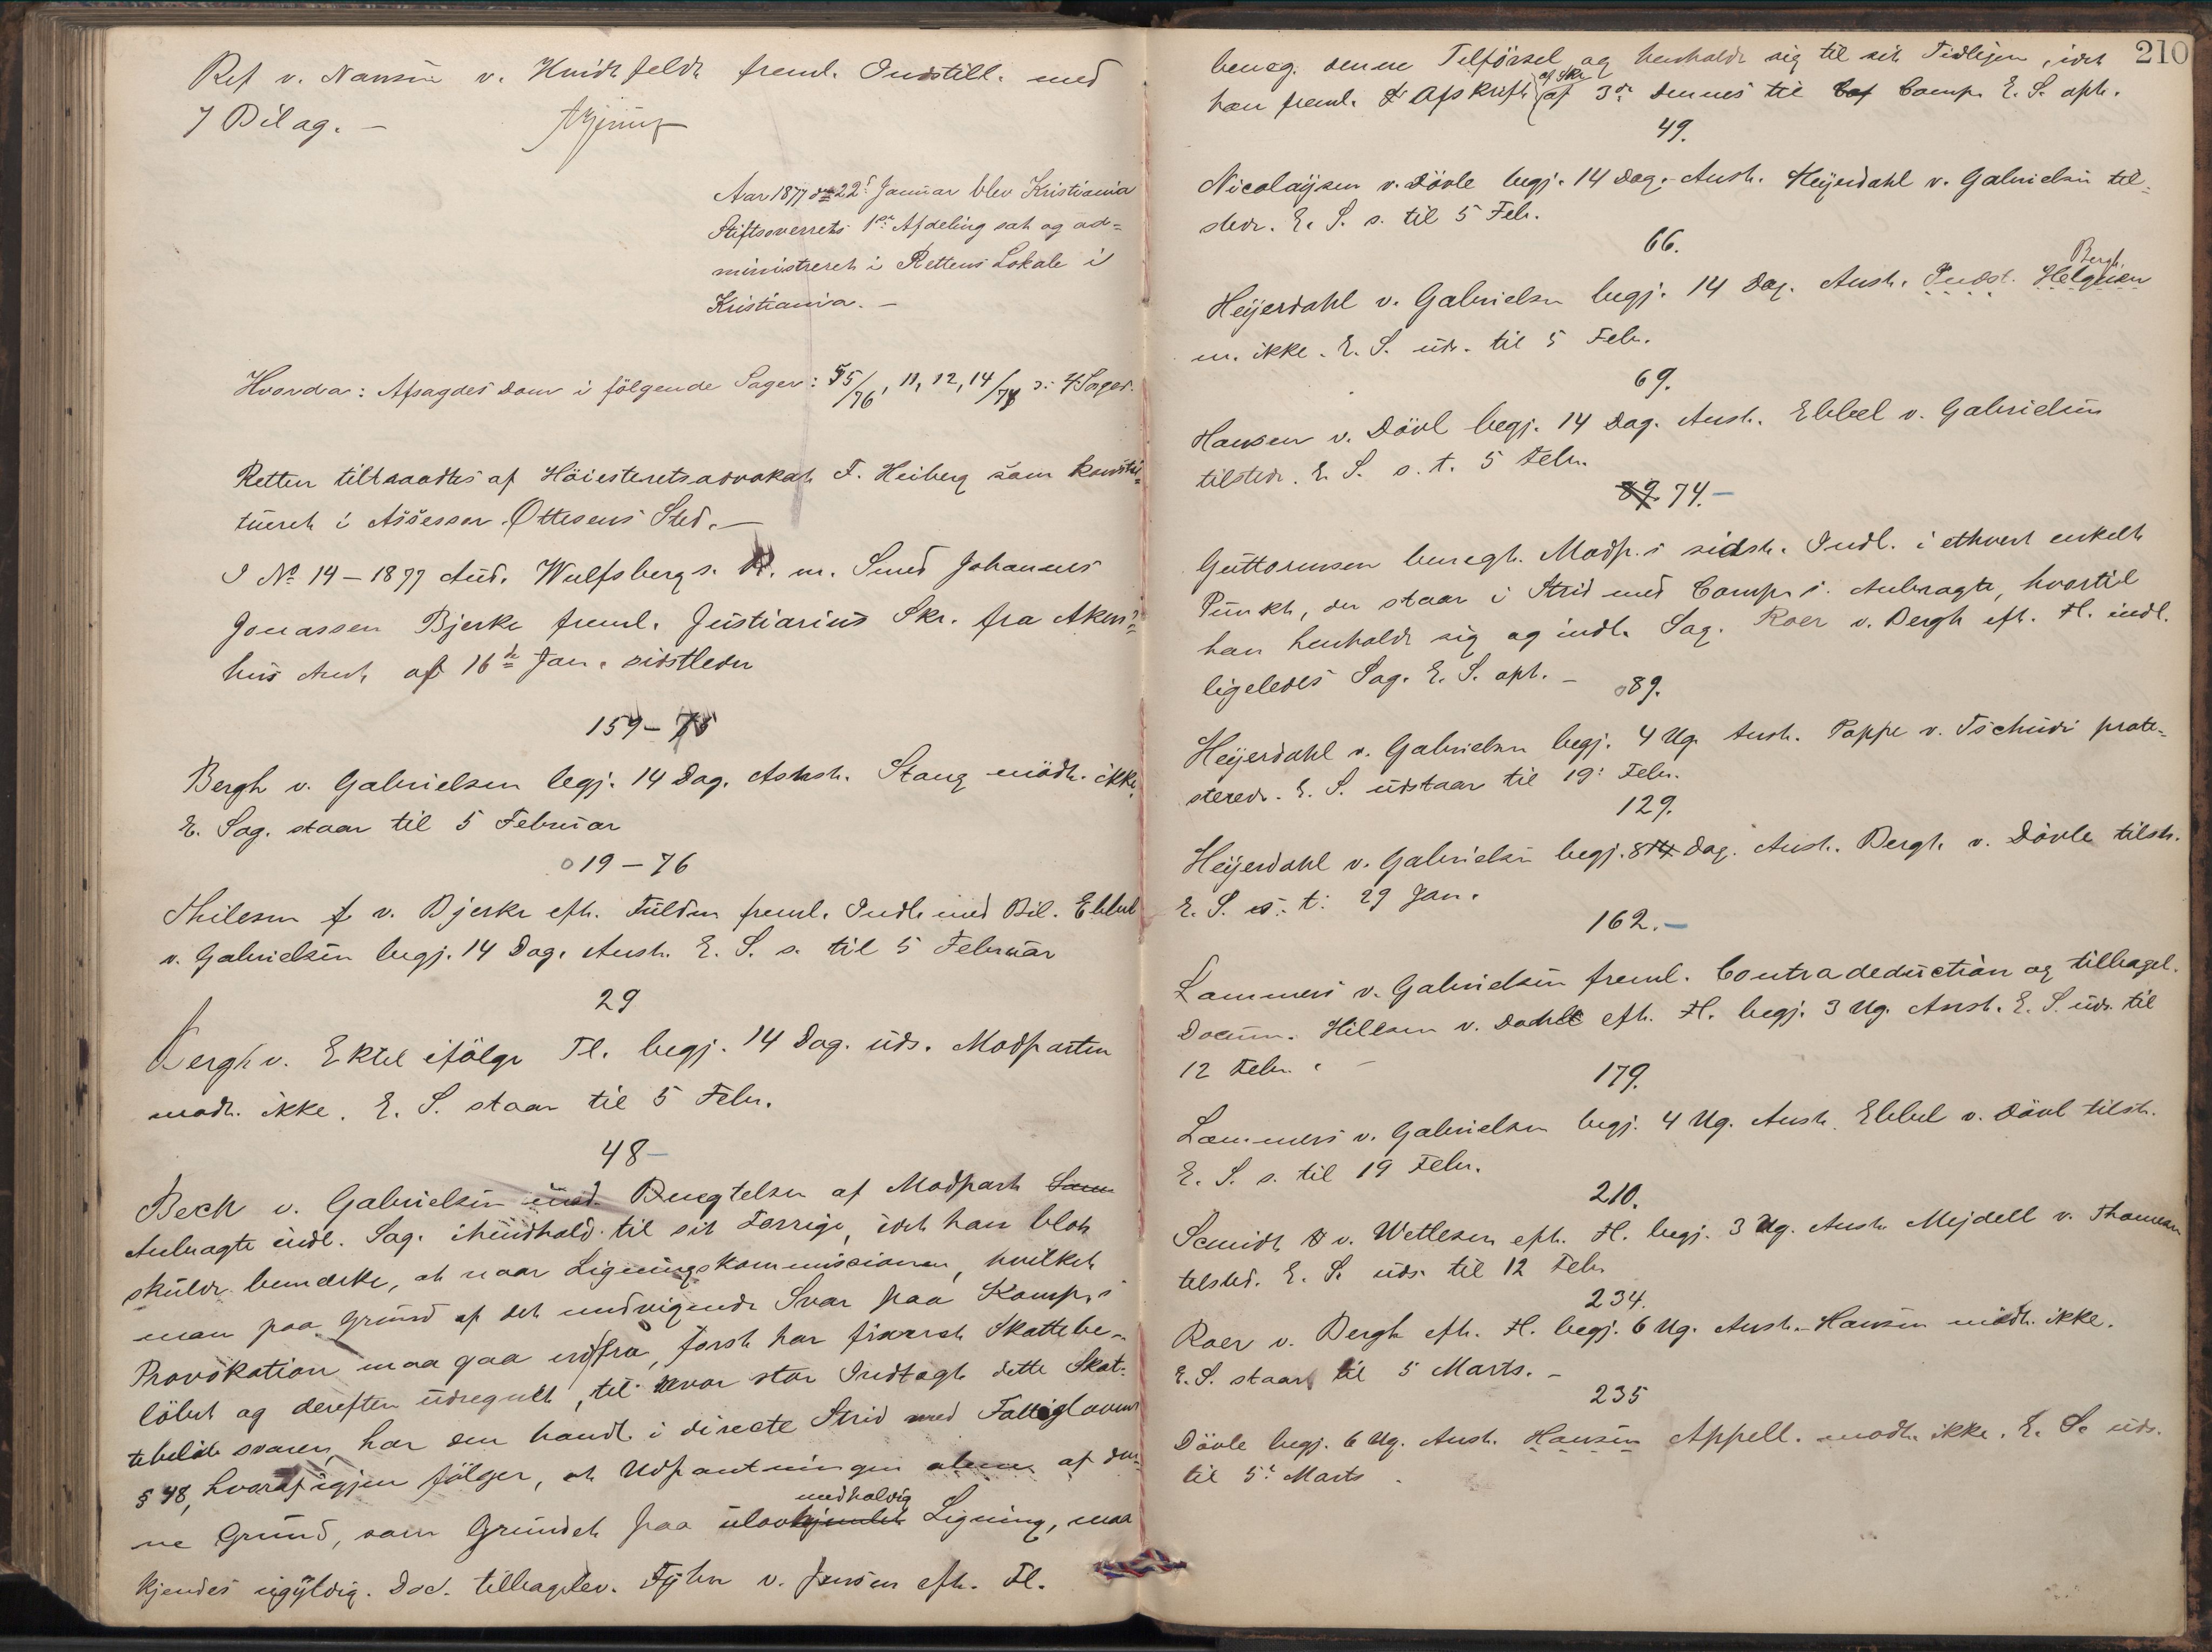 Ref v. Nansen v. Hvidtfeldt freml. Indstill. med
7 Bilag. —
Aar 1877 den 22d Januar blev Kristiania
Stiftsoverrets 1ste Afdeling sat og ad=
ministreret i Rettens Lokale i
Kristiania. —
Hvorda: Afsagdes Dom i følgende Sager: 55/76, 11, 12, 14/77 ɔ: 4 Sager.
Retten tiltraadtes af Höiesteretsadvokat F. Heiberg som konsti=
tueret i Assessor Ottesens Sted. —
I No 14 — 1877 Aud. Wulfsberg s. m. Smed Johannes
Jonassen Bjerke freml. Justiarius Skr. fra Akers=
hus Amt af 16de Jan. sidstleden
159 — 75
Bergh v. Gabrielsen begj. 14 Dag. Anst. Stang mödte ikke.
E. Sag. staar til 5 Februar
019 — 76
Thilesen v. Bjerke eft. Fulden freml. Indl. med Bil. Ebbel
v. Gabrielsen begj. 14 Dag. Anst. E. S. s. til 5 Februar
29
Bergh v. Ektel ifölge Fl. begj. 14 Dag. uds. Modparten
mödt. ikke. E. S. staar til 5 Febr.
48 —
Beck v. Gabrielsen med Benegtelsen af Modpart Sam
Anbragte indl. Sag. ihendhold til sit Forrige, idet han blot
skulde bemærke, at naar Ligningskommissionen, hvilket
man paa Grund af det undvigende Svar paa Komp.s
Provokation maa gaa ud fra, først har fixeret Skattebe-
löbet og derefter udregnet, til hvor stor Indtægt dette Skat-
tebelöb svarer, har den handl. i directe Strid med Fattiglovens
§ 48, hvoraf igjen fölger, at Udpantningen alene af den-
ne Grund, som Grundet paa ulovhjemlet Ligning, maa
medholdig
kjendes ugyldig. Doc. tilbagelev. Fyhn v. Jensen eft. Fl.
210
beneg. denne Tilförsel og henholdt sig til sit Tidligere, idet
han freml. Afskrift af Skr. af 3die Dennes til Comp. E. S. opt.
49.
Nicolaysen v. Dövle begj. 14 Dag. Anst. Heyerdahl v. Gabrielsen til=
stedr. E. S. s. til 5 Feb.
66.
Heyerdahl v. Gabrielsen begj. 14 Dag. Anst. Indst. Helgesen
Bergh.
m. ikke. E. S. uds. til 5 Feb.
69.
Hansen v. Dövl begj. 14 Dag. Anst. Ebbel v. Gabrielsen
tilstedr. E. S. s. t. 5 Febr.
89. 74. —
Guttormsen benegt. Modp.s sidste Indl. i ethvert enkelt
Punkt, der staar i Strid med Comp.s Anbragte, hvortil
han henholdt sig og indl. Sag. Roer v. Bergh eft. Fl. indl.
ligeledes Sag. E. S. opt. —
089.
Heyerdahl v. Gabrielsen begj. 4 Ug. Anst. Poppe v. Tschudi prote-
steredr. E. S. udstaar til 19: Febr.
129.
Heyerdahl v. Gabrielsen begj. 8 14 Dag. Anst. Bergh v. Dövle tilst.
E. S. s. t. 29 Jan.
162. —
Lammers v. Gabrielsen freml. Contradeduction og tilbagel.
Docum. Hillesen v. Dahll eft. Fl. begj. 3 Ug. Anst. E. S. uds. til
12 Febr. —
179.
Lammers v. Gabrielsen begj. 4 Ug. Anst. Ebbel v. Dövl tilst.
E. S. s. til 19 Febr.
210.
Scmidt v. Wetlesen eft. Fl. begj. 3 Ug. Anst. Mejdell v. Thomesen
tilsted. E. S. uds. til 12 Feb.
234.
Roer v. Bergh eft. Fl. begj. 6 Ug. Anst. — Hansen mödt. ikke.
E. S. staar til 5 Marts. —
235
Dövle begj. 6 Ug. Anst. Hansen Appell. mödt. ikke. E. S. uds.
til 5t Marts.